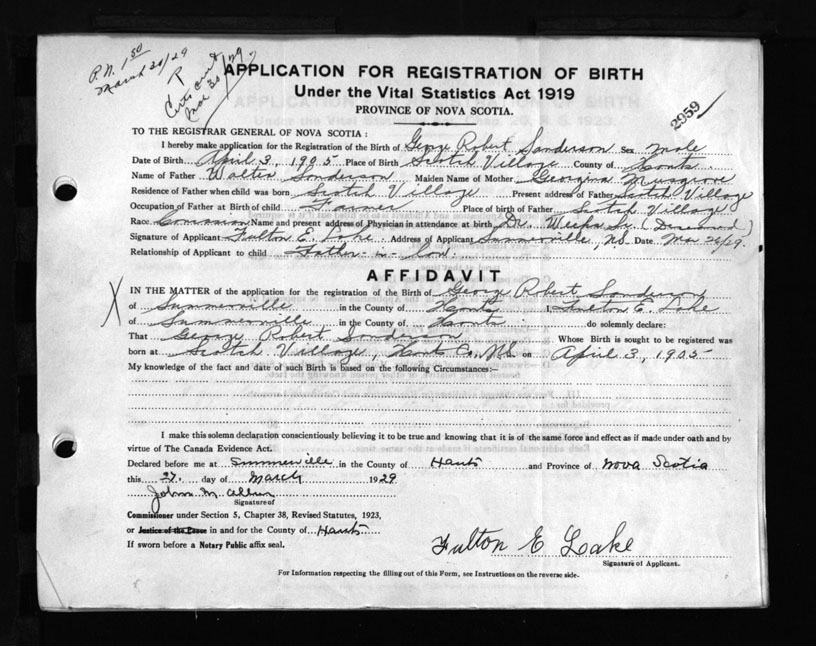 P.N. 1 50
March 30/29
R
Certs and
Mar 30/29
APPLICATION FOR REGISTRATION OF BIRTH
Under the Vital Statistics Act 1919
PROVINCE OF NOVA SCOTIA.
2959
TO THE REGISTRAR GENERAL OF NOVA SCOTIA :
I hereby make application for the Registration of the Birth of George Robert Sanderson Sex Male
Date of Birth April 3, 1905 Place of Birth Scotch Village County of Hants
Name of Father Walter Sanderson Maiden Name of Mother Georgina Musgrove
Residence of Father when child was born Scotch Village Present address of Father Scotch Village
Occupation of Father at Birth of child Farmer Place of birth of Father Scotch Village
Race Name and present address of Physician in attendance at birth Dr. Weeks Sr. (Deceased)
Signature of Applicant Fulton E. Lake Address of Applicant Summerville, NS. Date Mar 26/29.
Relationship of Applicant to child Father-in-law.
AFFIDAVIT
IN THE MATTER of the application for the registration of the Birth of George Robert Sanderson
of Summerville in the County of Hants I Fulton E. Lake
of Summerville in the County of Hants do solemnly declare:
That George Robert Sanderson Whose Birth is sought to be registered was
born at Scotch Village, Hants Co. N.S. on April 3, 1905
My knowledge of the fact and date of such Birth is based on the following Circumstances:—
I make this solemn declaration conscientiously believing it to be true and knowing that it is of the same force and effect as if made under oath and by
virtue of The Canada Evidence Act.
Declared before me at Summerville in the County of Hants and Province of Nova Scotia
this 27. day of March 1929
John M. Allen
Signature of
Commissioner under Section 5, Chapter 38, Revised Statutes, 1923,
or Justice of the Peace in and for the County of Hants
If sworn before a Notary Public affix seal.
Fulton E Lake
Signature of Applicant.
For Information respecting the filling out of this Form, see Instructions on the reverse side.